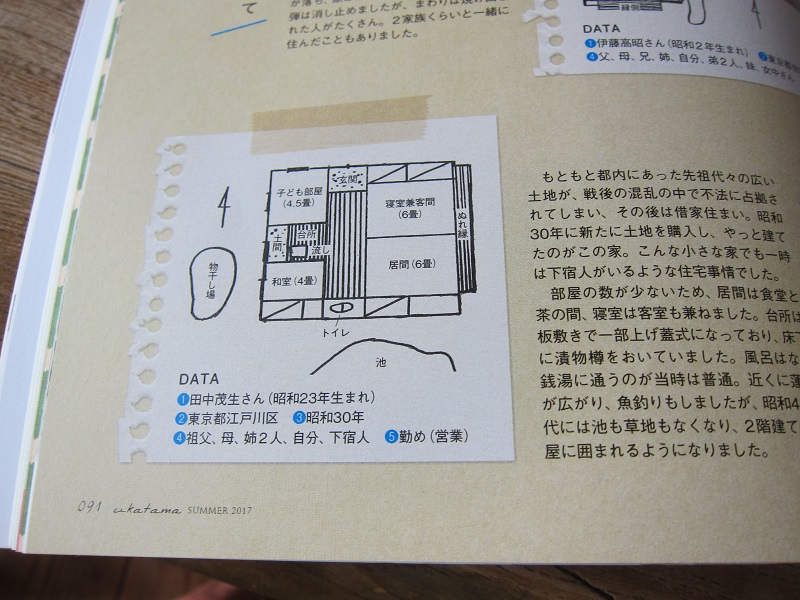 て
弾は消し止めましたが、まわりは焼け
れた人がたくさん。2家族くらいと一緒に
住んだこともありました。
縁側
DATA
❶伊藤高昭さん（昭和2年生まれ）
❹父、母、兄、姉、自分、弟2人、妹、女中さん
子ども部屋
（4.5畳）
玄関
寝室兼客間
（6畳）
ぬれ縁
土間
台所
流し
居間（6畳）
和室（4畳）
物干し場
トイレ
池
DATA
❶田中茂生さん（昭和23年生まれ）
❷東京都江戸川区 ❸昭和30年
❹祖父、母、姉2人、自分、下宿人 ❺勤め（営業）
もともと都内にあった先祖代々の広い
土地が、戦後の混乱の中で不法に占拠さ
れてしまい、その後は借家住まい。昭和
30年に新たに土地を購入し、やっと建て
たのがこの家。こんな小さな家でも一時
は下宿人がいるような住宅事情でした。
部屋の数が少ないため、居間は食堂と
茶の間、寝室は客室も兼ねました。台所は
板敷きで一部上げ蓋式になっており、床下
に漬物樽をおいていました。風呂はな
銭湯に通うのが当時は普通。近くに蓮
が広がり、魚釣りもしましたが、昭和4
代には池も草地もなくなり、2階建て
屋に囲まれるようになりました。
091 ukatama SUMMER 2017